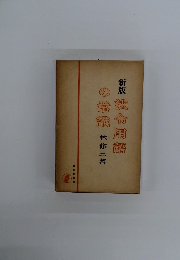 新版
法令用語
の常識
林修三著